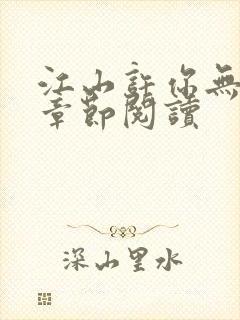 江山許你無
章節閱讀
深山里水